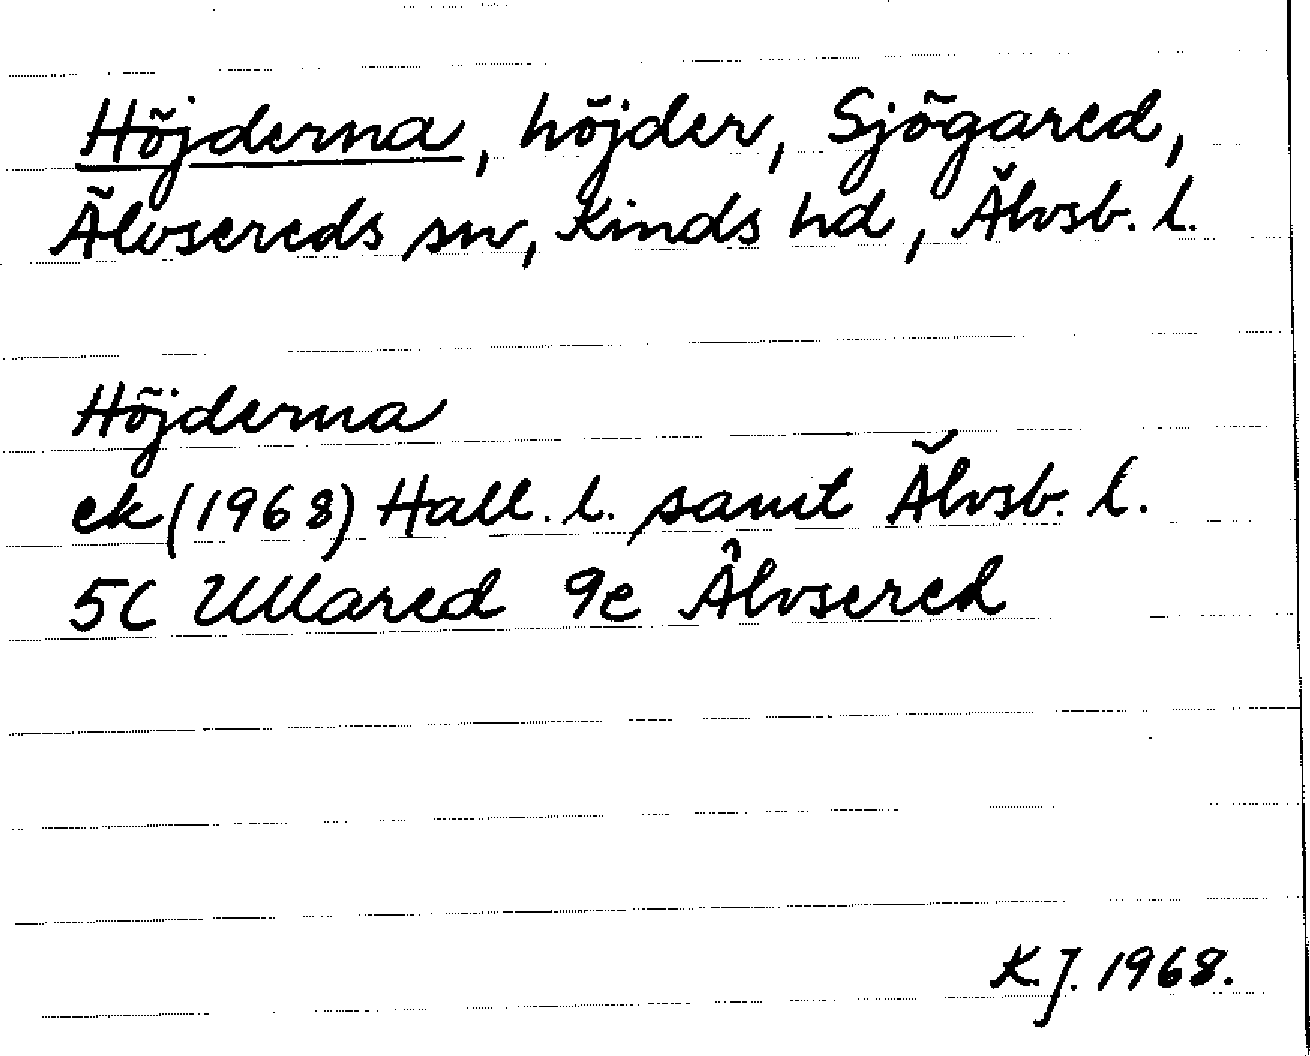 Höjderna, höjder, Sjögared,
Älvsereds sn, Kinds hd, Älvsb. l.
Höjderna
ek (1968) Hall. l. samt Älvsb. l.
5C Ullared 9e Älvsered
K.J. 1968.